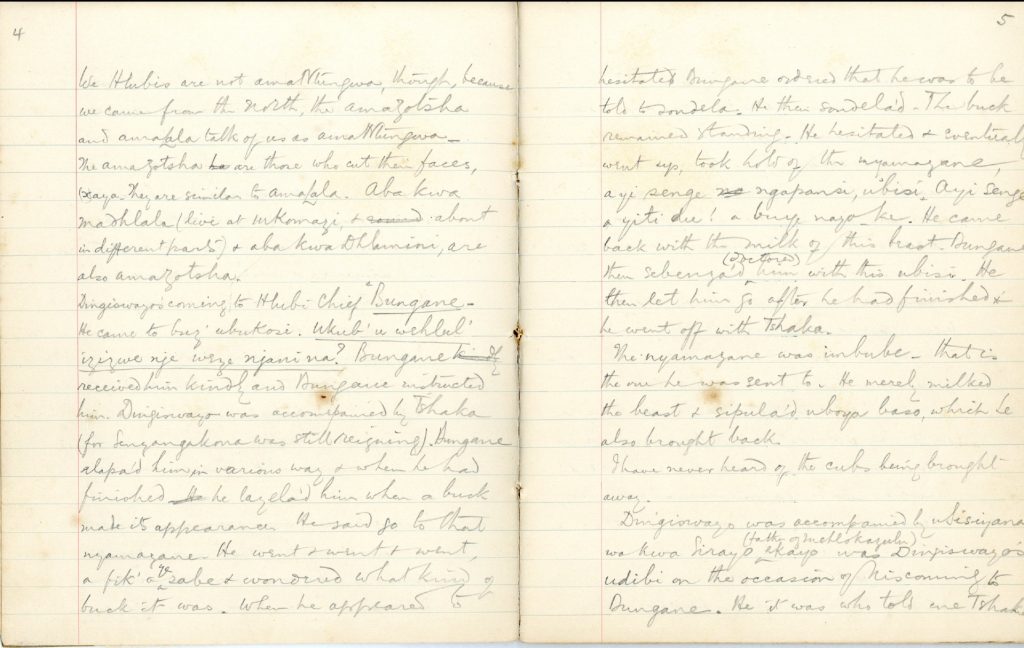 4
We Hlubis are not amaNtungwa, though, because
we came from the North, the amazotsha
and amalala talk of us as amaNtungwa -
The amazotsha are those who cut their faces,
They are similar to amalala. Aba kwa
Madhlala (live at Mkomazi, & about
in different parts) & aba kwa Dhlamini, are
also amazotsha.
Dingiswayo's coming to Hlubi Chief Bungane -
He came to buz' ubukosi. Ukub' u wehlul'
izizwe nje weze njani na? Bungane
received him kindly and Bungane instructed
him. Dingiswayo was accompanied by Tshaka
(for Senzangakona was still reigning). Bungane
alapa'd him in various way & when he had
finished he layela'd him when a buck
made its appearance. He said go to that
nyamazane. He went & went & went,
a fik' a ye sabe & wondered what kind of
buck it was. When he appeared to
5
hesitated Bungane ordered that he was to be
told to sondela. He then sondela'd - The buck
remained standing. He hesitated & eventually
went up, took hold of the nyamazane,
a yi senge ngapansi, ubisi. Ayi senge
a yiti du! a buye nayo ke. He came
back with the milk of this beast. Bungane
then sebenza'd (doctored) him with this ubisi. He
then let him go after he had finished &
he went off with Tshaka.
The nyamazane was imbube - that is
the one he was sent to. He merely milked
the beast & sipula'd uboya baso, which he
also brought back.
I have never heard of the cubs being brought
away.
Dingiswayo was accompanied by ubisiyana
wa kwa Sirayo (father of Mehlokazulu) was Dingiswayo's
udibi on the occasion of his coming to
Bungane. He it was who told me Tshaka